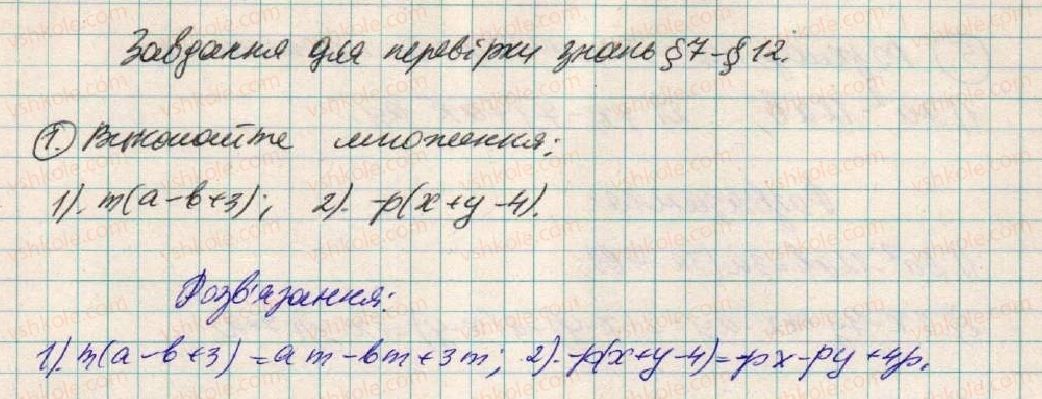 Завдання для перевірки знань §7-§12.
1. Виконайте множення:
1). m(a-b+3); 2). -p(x+y-4).
Розв'язання:
1). m(a-b+3)=am-bm+3m; 2).-p(x+y-4)=-px-py+4p.